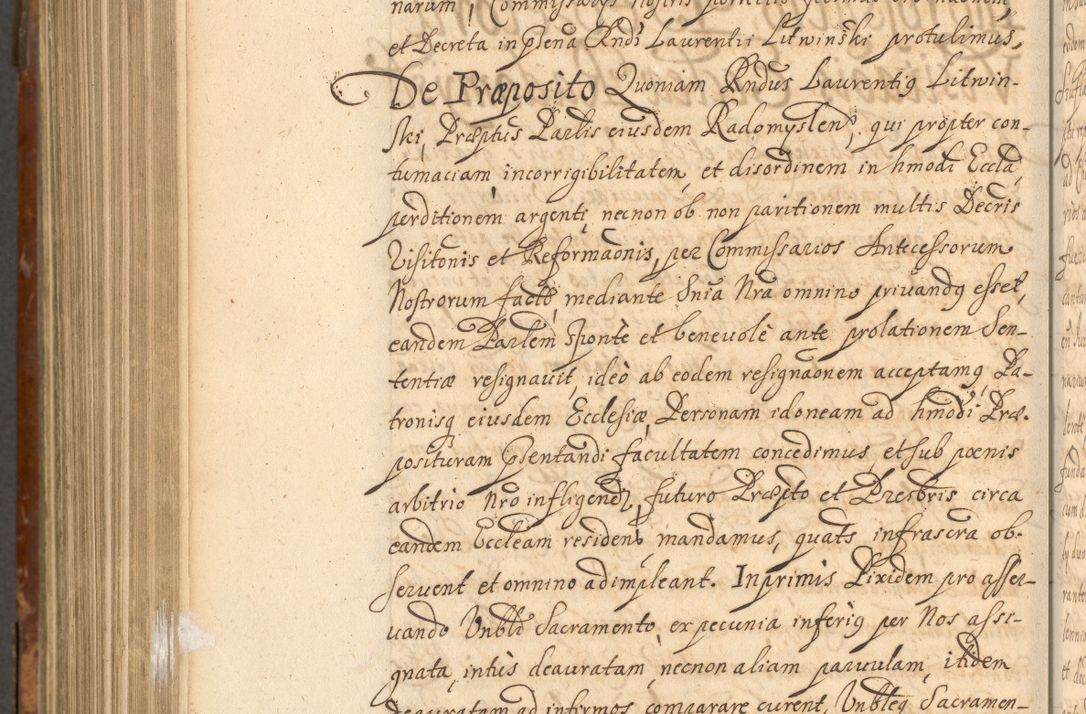 et Decreta in pdena Rndi Laurentii Litwinski protulimus,
De Præposito Quoniam Rndus Laurentiq Litwin-
ski, Præptus Parlis eiusdem Radomyslen, qui propter con-
tumaciam, incorrigibilitatem, et disordinem in hmodi Eccla,
perditionem argenti, necnon ob non paritionem multis Decris
Visitonis et Reformaonis, per Commissarios Antecessorum
Nostrorum facto, mediante Snia Nra omnino privandq esset,
eandem Parlem sponte et benevolè ante prolationem Sen-
tentiæ resignavit, ideò ab eodem resignaonem acceptamq, Pa-
tronisq eiusdem Ecclesiæ, Personam idoneam ad hmodi Præ-
posituram psentandi facultatem concedimus, et sub poenis
arbitrio Nro infligend, futuro Præpto et Presbris circa
eandem Eccleam residen mandamus, quats infrascra ob-
servent et omnino adimpleant. Inprimis Pixidem pro asser-
vando Vnbli Sacramento, ex pecunia inferiq per Nos assi-
gnata, intùs deauratam, necnon aliam parvulam, itidem
deauratam ad infirmos comparare curent, Vnbleq Sacramen-